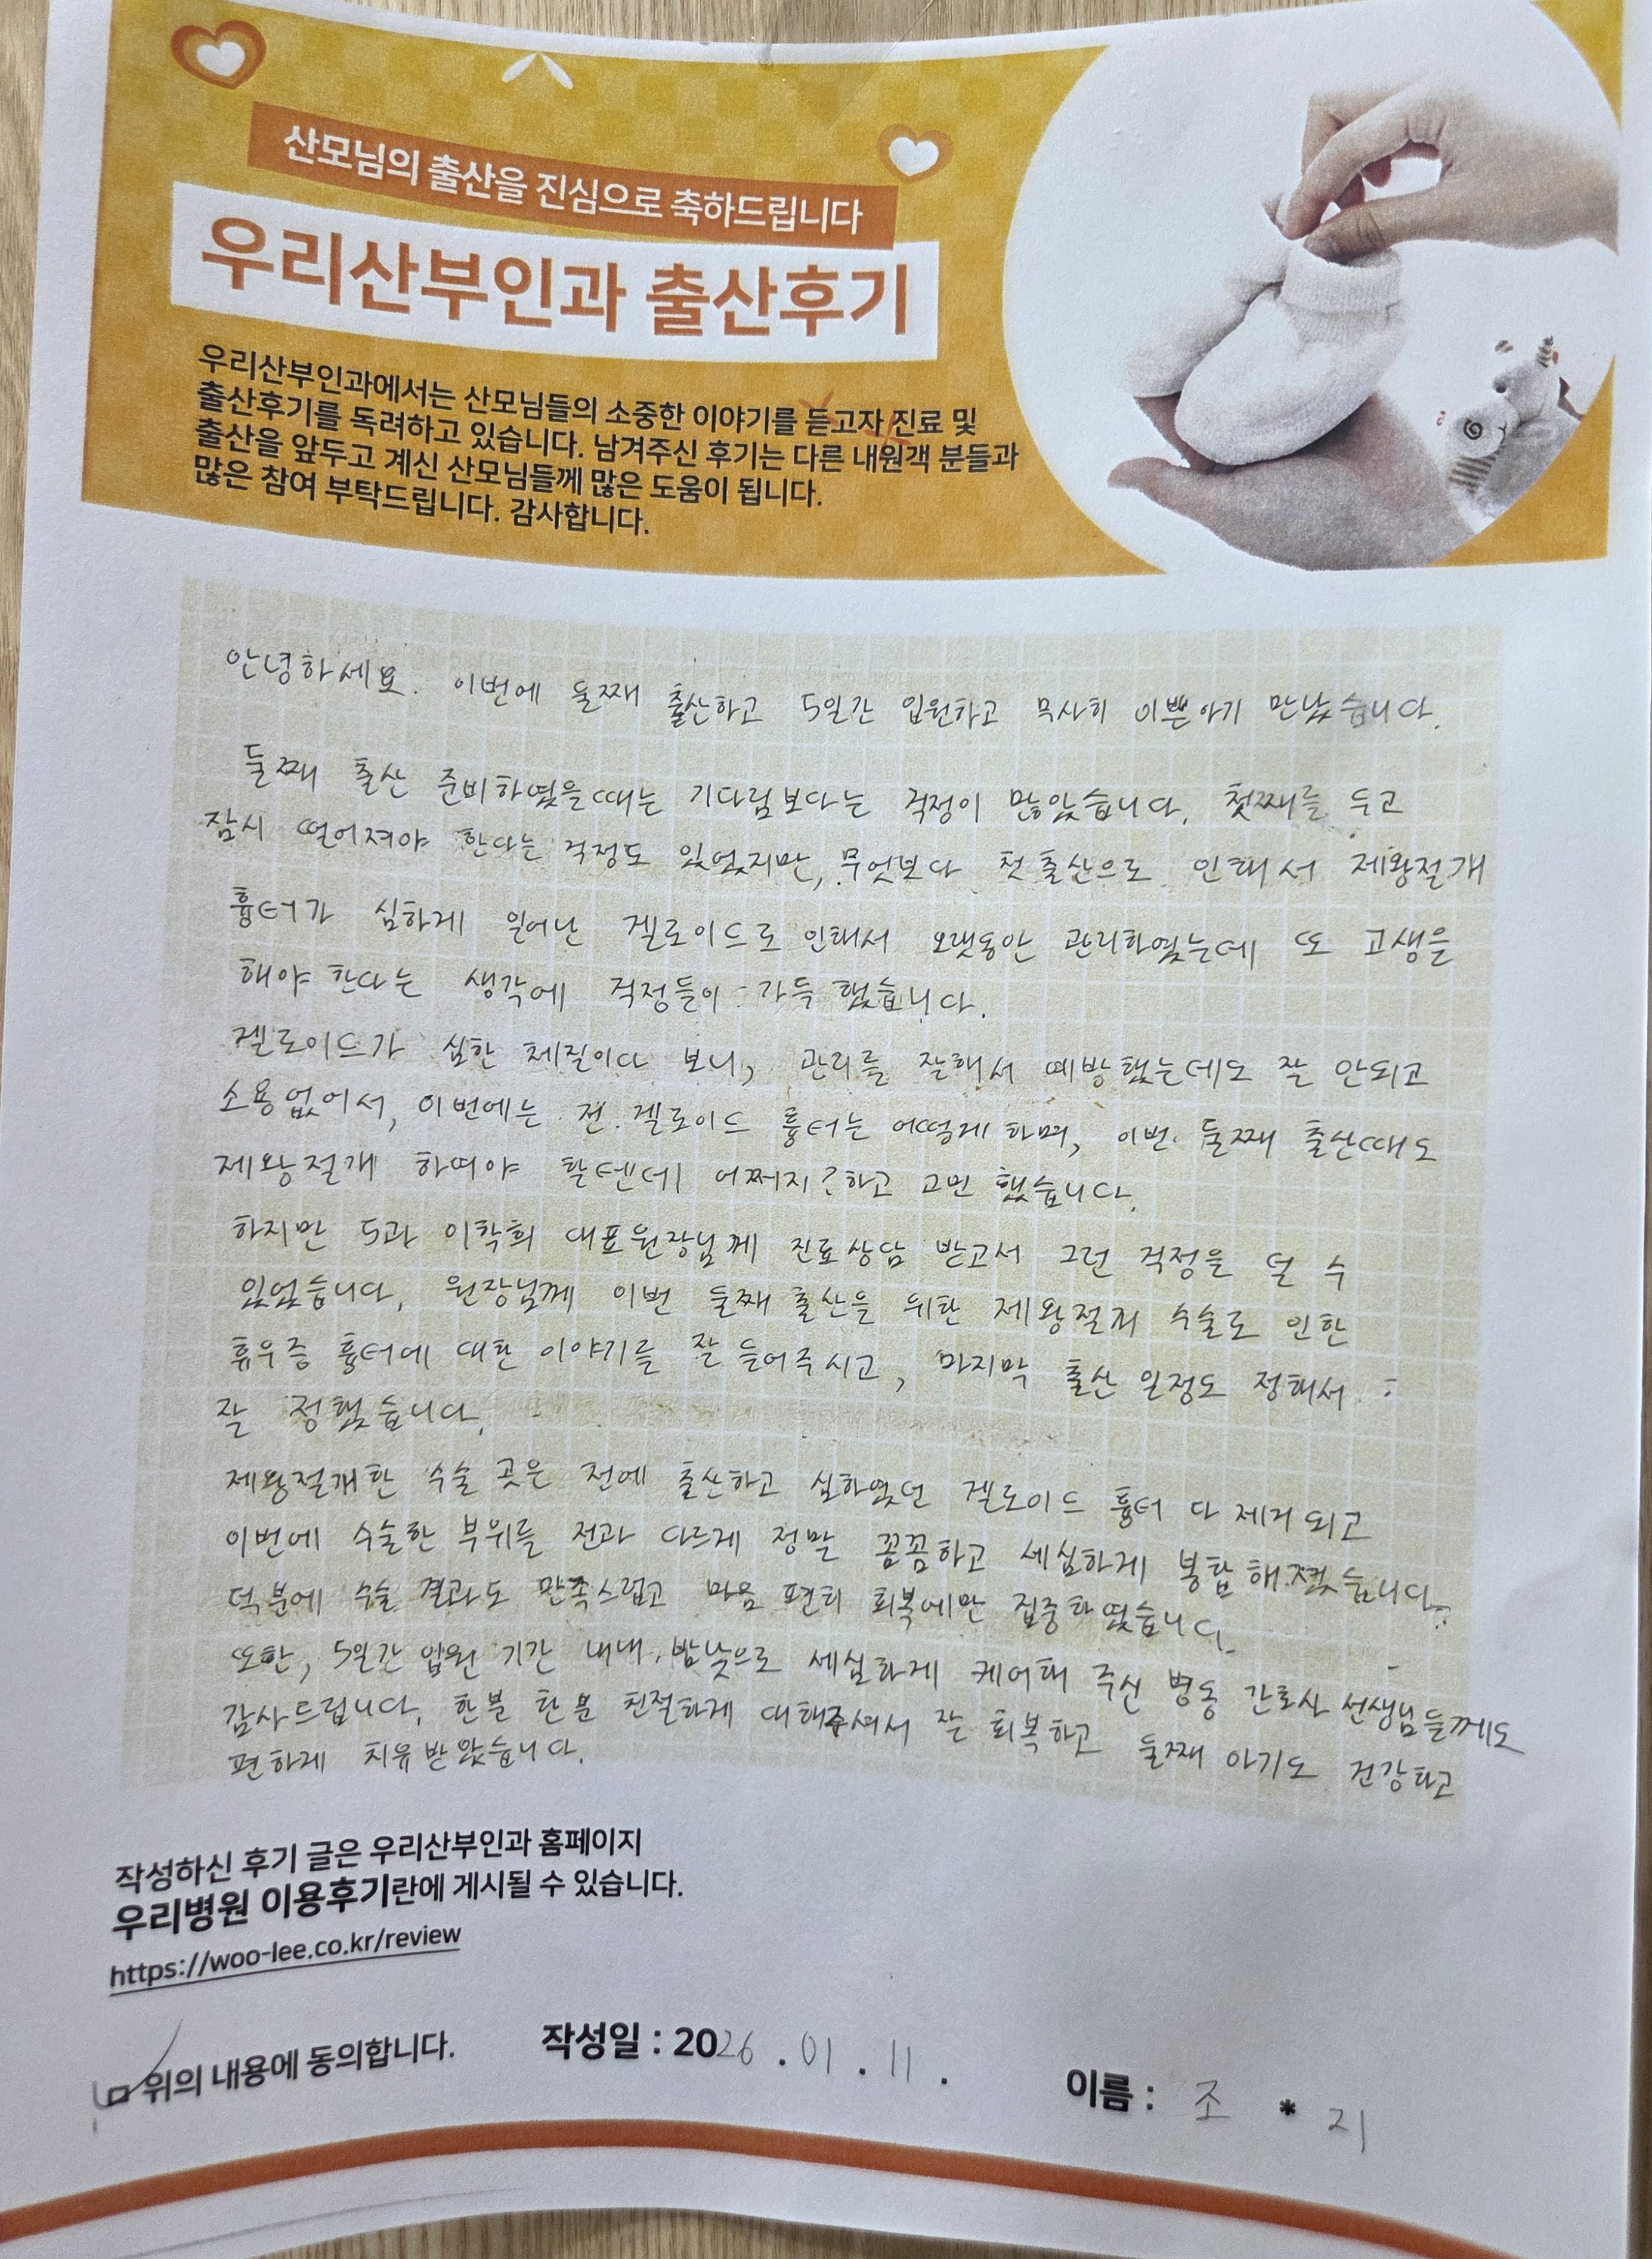 산모님의 출산을 진심으로 축하드립니다
우리산부인과 출산후기
우리산부인과에서는 산모님들의 소중한 이야기를 듣고자 진료 및
출산후기를 독려하고 있습니다. 남겨주신 후기는 다른 내원객 분들과
출산을 앞두고 계신 산모님들께 많은 도움이 됩니다.
많은 참여 부탁드립니다. 감사합니다.
안녕하세요. 이번에 둘째 출산하고 5일간 입원하고 무사히 이쁜아기 만났습니다.
둘째 출산 준비하였을때는 기다림보다는 걱정이 많았습니다. 첫째를 두고
잠시 떨어져야 한다는 걱정도 있었지만, 무엇보다 첫 출산으로 인해서 제왕절개
흉터가 심하게 일어난 켈로이드로 인해서 오랫동안 관리하였는데 또 고생을
해야 한다는 생각에 걱정들이 가득 했습니다.
켈로이드가 심한 체질이다 보니, 관리를 잘해서 예방했는데도 잘 안되고
소용없어서, 이번에는 전 켈로이드 흉터는 어떻게 하며, 이번 둘째 출산때도
제왕절개 하여야 할텐데 어쩌지? 하고 고민 했습니다.
하지만 5과 이학희 대표원장님께 진료상담 받고서 그런 걱정을 덜 수
있었습니다. 원장님께 이번 둘째 출산을 위한 제왕절개 수술로 인한
휴우증 흉터에 대한 이야기를 잘 들어주시고, 마지막 출산 일정도 정해서
잘 정했습니다.
제왕절개한 수술 곳은 전에 출산하고 심하였던 켈로이드 흉터 다 제거되고
이번에 수술한 부위를 전과 다르게 정말 꼼꼼하고 세심하게 봉합해졌습니다.
덕분에 수술 결과도 만족스럽고 마음 편히 회복에만 집중하였습니다.
또한, 5일간 입원 기간 내내 밤낮으로 세심하게 케어해 주신 병동 간호사 선생님들께도
감사드립니다. 한분 한분 친절하게 대해주셔서 잘 회복하고 둘째 아기도 건강하고
편하게 치유받았습니다.
작성하신 후기 글은 우리산부인과 홈페이지
우리병원 이용후기란에 게시될 수 있습니다.
https://woo-lee.co.kr/review
위의 내용에 동의합니다. 작성일 : 2026 . 01 . 11 . 이름 : 조 * 지